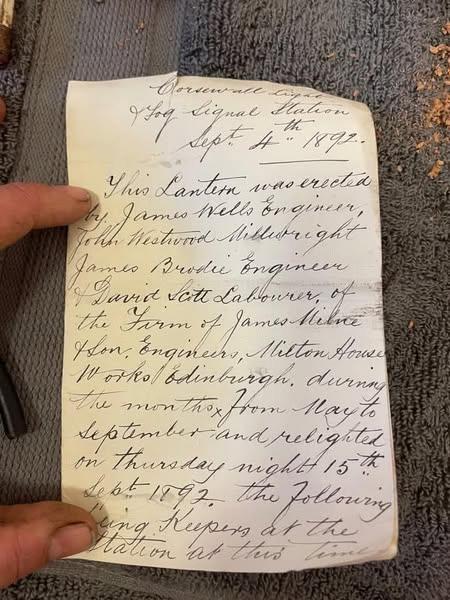 Corsewall Light
& Fog Signal Station
Sept. 4th 1892.
This Lantern was erected
by James Wells Engineer,
John Westwood Millwright
James Brodie Engineer
& David Scott Labourer, of
the Firm of James Milne
& Son, Engineers, Milton House
Works, Edinburgh, during
the months from May to
September and relighted
on Thursday night 15th
Sept. 1892. the following
being Keepers at the
Station at this time